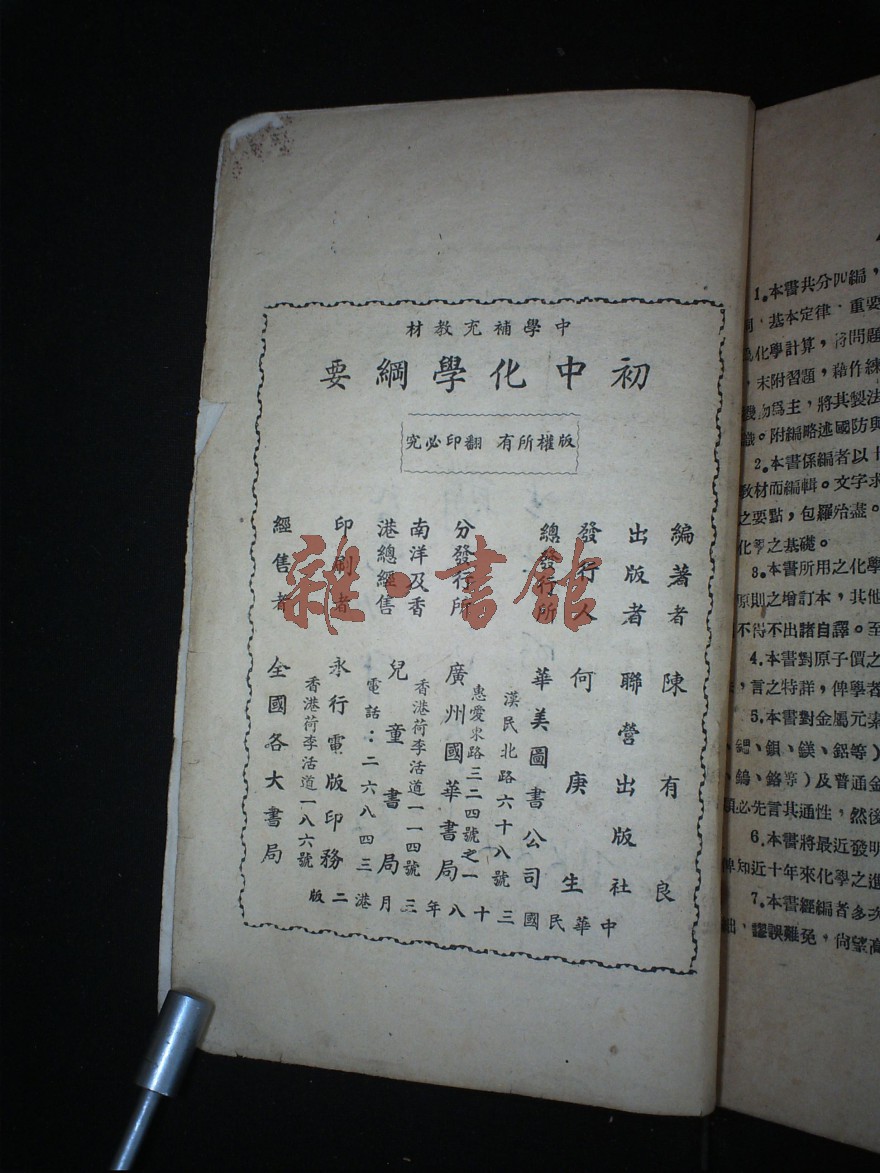 中學補充教材
初中化學綱要
版權所有 翻印必究
編著者 陳有良
出版者 聯營出版社
發行人 何庚生
總發行所 華美圖書公司
漢民北路六十八號
分發行所 廣州國華書局
惠愛東路三二四號之一
南洋及香港總經售 兒童書局
香港荷李活道一一四號
電話：二六八四三
印刷者 永行電版印務
香港荷李活道一八六號
經售者 全國各大書局
中華民國三十八年三月港二版
雜·書館
1。本書共分四編，
基本定律、重要
化學計算，將問題
，末附習題，藉作練
為主，將其製法
。附編略述國防與
2。本書係編者以十
教材而編輯。文字求
之要點，包羅殆盡。
化學之基礎。
3。本書所用之化學
原則之增訂本，其他
不得不出諸自譯。至
4。本書對原子價之
，言之特詳，俾學者
5。本書對金屬元素
、鋇、鎂、鋁等）
、鎢、鉻等）及普通金
必先言其通性，然後
6。本書將最近發明
俾知近十年來化學之進
7。本書經編者多次
出，謬誤難免，尚望高